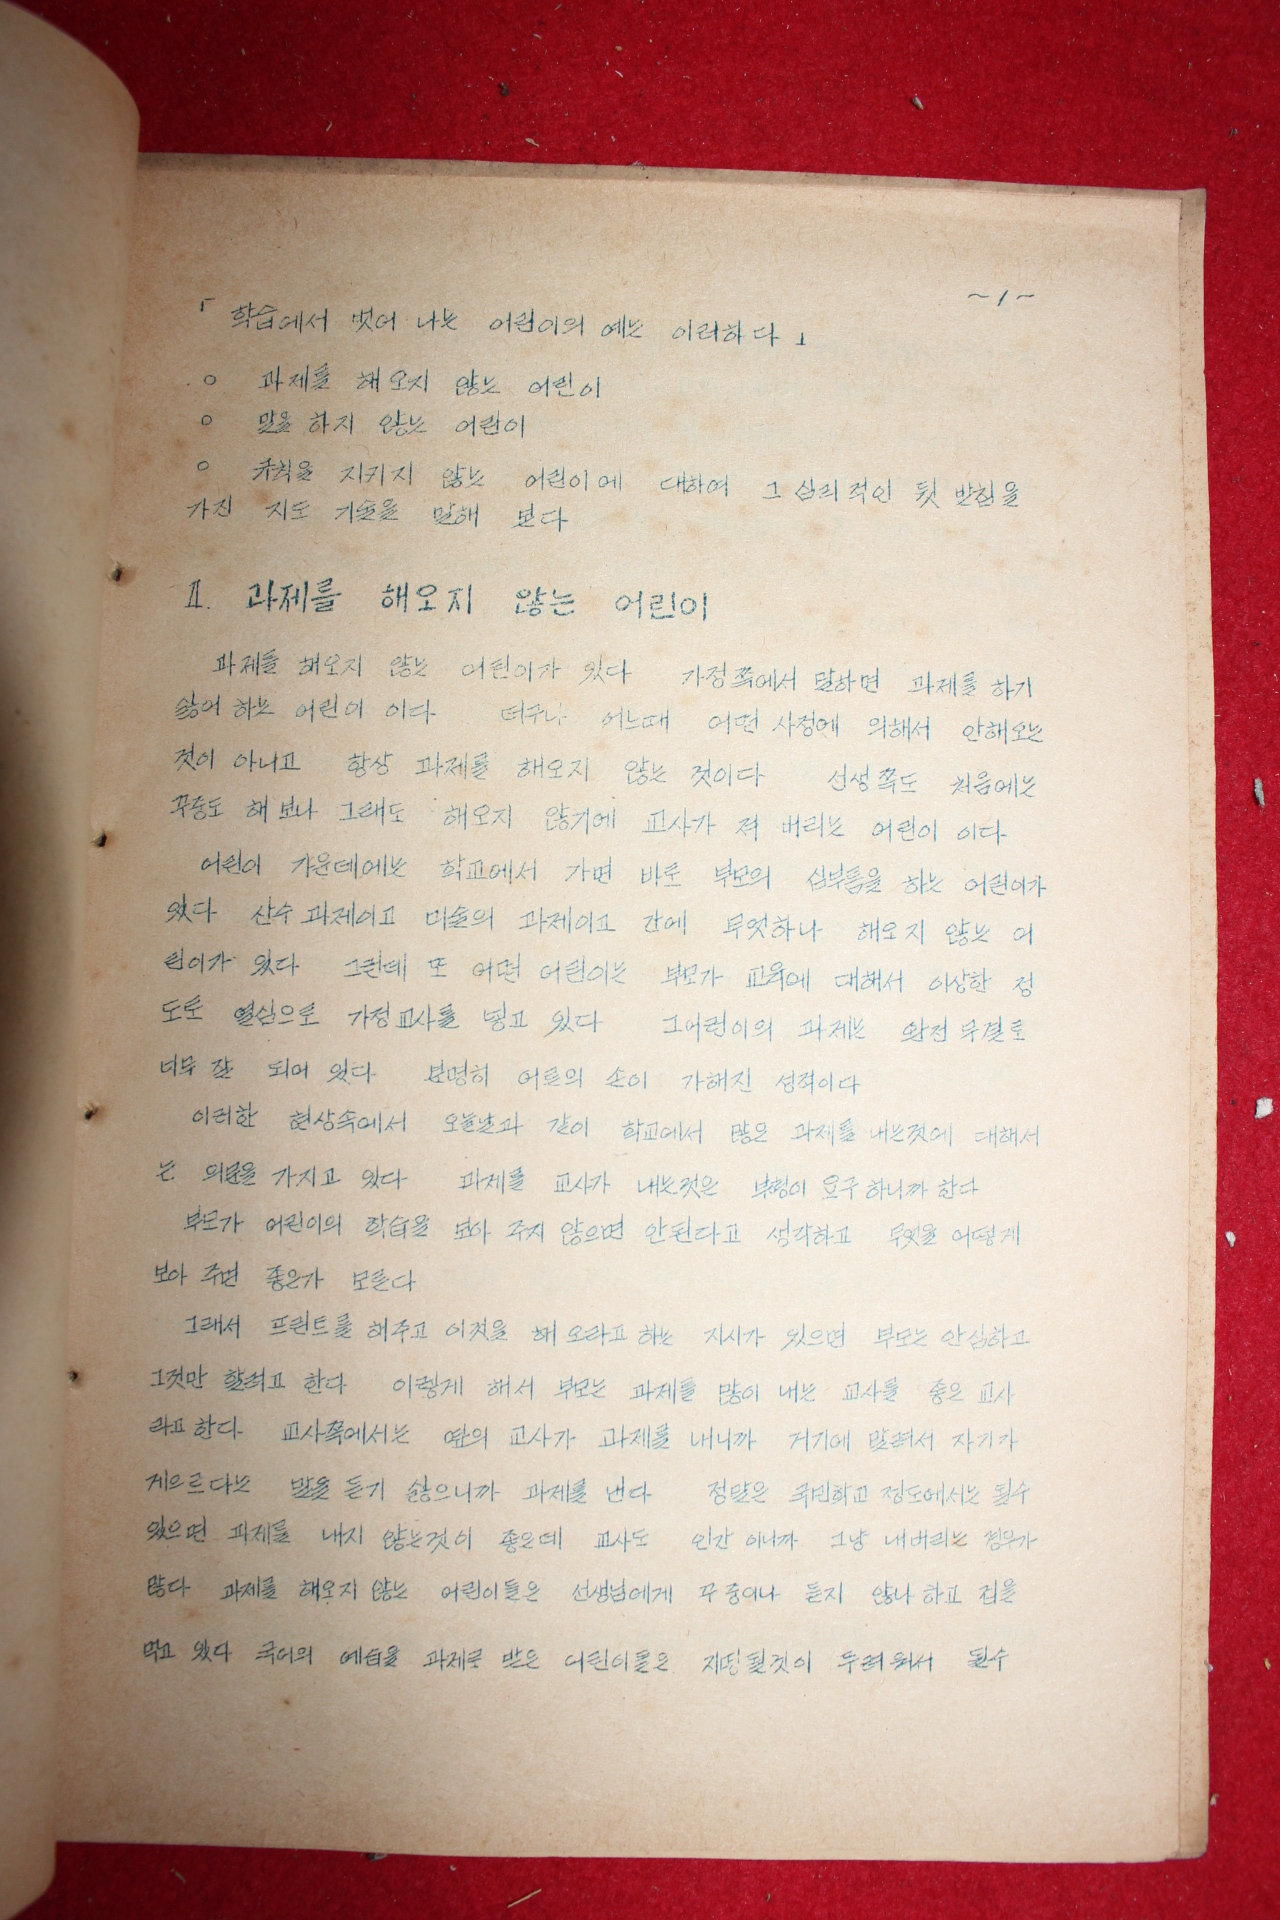 ~1~
「학습에서 벗어 나는 어린이의 예는 이러하다」
○ 과제를 해오지 않는 어린이
○ 말을 하지 않는 어린이
○ 규칙을 지키지 않는 어린이에 대하여 그 심리적인 뒷 받침을
가진 지도 기술을 말해 본다
Ⅱ. 과제를 해오지 않는 어린이
과제를 해오지 않는 어린이가 있다 가정쪽에서 말하면 과제를 하기
싫어 하는 어린이 이다 더우나 어느때 어떤 사정에 의해서 안해오는
것이 아니고 항상 과제를 해오지 않는 것이다 선생쪽도 처음에는
꾸중도 해 보나 그래도 해오지 않기에 교사가 져 버리는 어린이 이다
어린이 가운데에는 학교에서 가면 바로 부모의 심부름을 하는 어린이가
있다 산수 과제이고 미술의 과제이고 간에 무엇하나 해오지 않는 어
린이가 있다 그런데 또 어떤 어린이는 부모가 교육에 대해서 이상한 정
도로 열심으로 가정교사를 넣고 있다 그어린이의 과제는 완전 무결로
너무 잘 되어 있다 분명히 어른의 손이 가해진 성적이다
이러한 현상속에서 오늘날과 같이 학교에서 많은 과제를 내는것에 대해서
는 의문을 가지고 있다 과제를 교사가 내는것은 부형이 요구 하니까 한다
부모가 어린이의 학습을 보아 주지 않으면 안된다고 생각하고 무엇을 어떻게
보아 주면 좋은가 모른다
그래서 프린트를 해주고 이것을 해 오라고 하는 지시가 있으면 부모는 안심하고
그것만 할려고 한다 이렇게 해서 부모는 과제를 많이 내는 교사를 좋은 교사
라고 한다 교사쪽에서는 옆의 교사가 과제를 내니까 거기에 말려서 자기가
게으르다는 말을 듣기 싫으니까 과제를 낸다 정말은 국민학교 정도에서는 될수
있으면 과제를 내지 않는것이 좋은데 교사도 인간 이니까 그냥 내버리는 경우가
많다 과제를 해오지 않는 어린이들은 선생님에게 꾸중이나 듣지 않나 하고 겁을
먹고 있다 국어의 예습을 과제로 받은 어린이들은 지명될것이 두려워서 될수